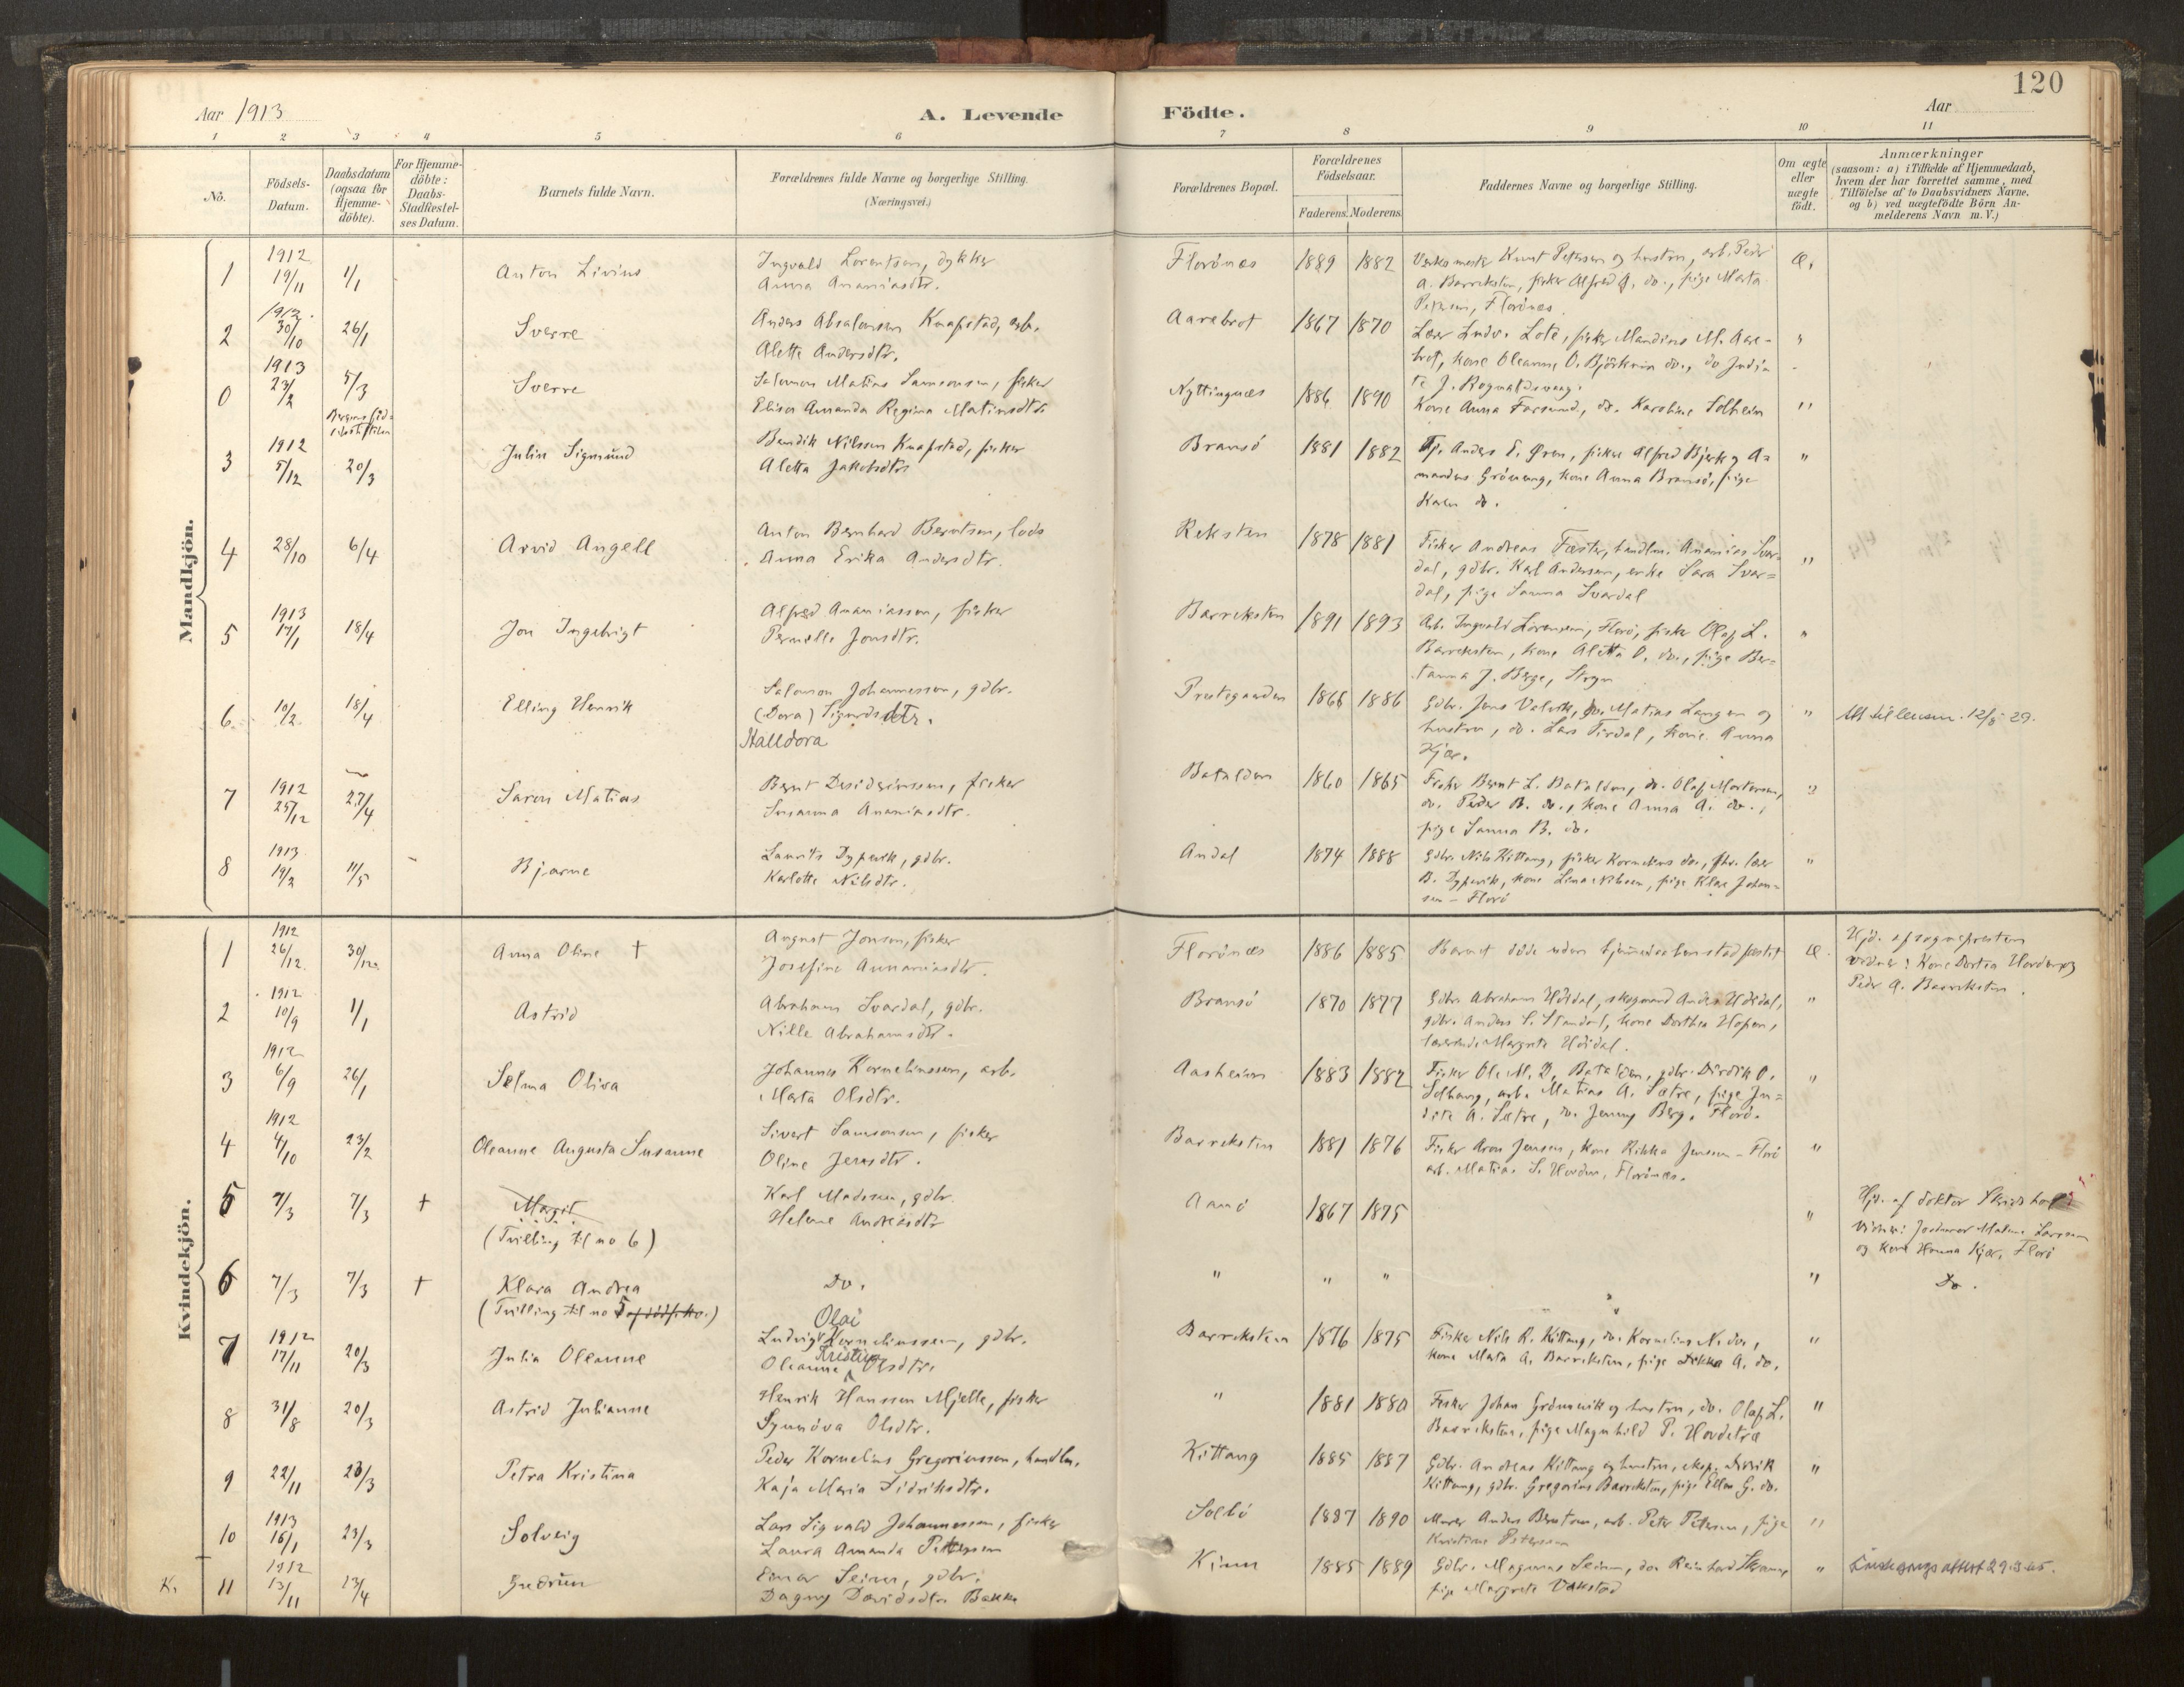 120
Aar 1913
A. Levende
Födte.
Aar
1 2 3 4 5 6 7 8 9 10 11
No.
Födsels-
Datum.
Daabsdatum
(ogsaa for
Hjemme-
döbte).
For Hjemme-
döbte:
Daabs-
Stadfæstel-
ses Datum.
Barnets fulde Navn.
Forældrenes fulde Navne og borgerlige Stilling.
(Næringsvei.)
Forældrenes Bopæl.
Forældrenes
Födselsaar.
Faderens. Moderens.
Faddernes Navne og borgerlige Stilling.
Om ægte
eller
uægte
födt.
Anmærkninger
(saasom: a) i Tilfælde af Hjemmedaab,
hvem der har forrettet samme, med
Tilföielse af to Daabsvidners Navne.
og b) ved uægtefödte Börn An-
melderens Navn m. V.)
Mandkjön.
1 1912 19/11 1/1 Anton Livius
Ingvald Lorentsen, dykker
Anna Ananiasdtr.
Florönæs 1889 1882
Verksmester Knut Petersen og hustru, arb. Peder
A. Barreksten, fisker Alfred A. do., pige Marta
Petersen, Florönæs
Æ.
2 1912. 30/10 26/1 Sverre
Anders Absalonsen Knapstad, arb.
Alette Andersdtr.
Aarebrot 1867 1870
Lær Ludv. Lote, fisker Mandius M. Aare-
brot, kone Oleanne O. Björknes do., do Judi-
te J. Rognaldsvaag.
"
0 1913 23/2 5/3 Sverre
Salomon Matias Samsonsen, fisker
Elisa Amanda Regina Matiasdtr.
Nyttingnæs 1886 1890
Kone Anna Farsund, do. Karoline Solheim
"
3 1912 5/12 20/3 Julius Sigmund
Bendik Nilssen Knapstad, fisker
Aletta Jakobsdtr
Bransö 1881 1882
Tj. Anders E. Øren, fisker Alfred Bjerk og A=
mandus Grönevig, kone Anna Bransö, pige
Karen do.
"
4 28/10 6/4 Arvid Angell
Anton Bernhard Berntsen, lods
Anna Erika Andersdtr.
Reksten 1878 1881
Fisker Andreas Fæster, handlm. Ananias Svar-
dal, gdbr. Karl Andersen, enke Sara Svar=
dal, pige Sanna Svardal
"
5 1913 17/1 18/4 Jon Ingebrigt
Alfred Ananiassen, fisker
Pernille Jonsdtr.
Barreksten 1891 1893
Arb. Ingvald Lorensen, Florö, fisker Olaf L.
Barreksten, kone Aletta O. do., pige Ber=
tanna J. Berge, Stryn
"
6. 10/2 18/4 Elling Henrik
Salomon Johannessen, gdbr.
(Dora) Sigurdsdtr.
Halldora
Prestegaarden 1868 1886
Gdbr. Jens Valvik, do. Matias Langen og
hustru, do. Lars Tirdal, kone Anna
Kjær.
"
7 1912 25/12 27/4 Saron Matias
Bernt Desideriussen, fisker
Susanna Ananiasdtr.
Batalden 1860 1865
Fisker Bernt L. Batalden, do. Olaf Mortensen,
do. Peder B. do., kone Anna A. do.,
pige Sanna B. do.
"
8 1913 19/2 11/5 Bjarne
Laurits Dypevik, gdbr.
Karlotte Nilsdtr.
Andal 1874 1888
Gdbr. Nils Kittang, fisker Kornelius do., fhv. lær
B. Dypevik, kone Lina Nilsen, pige Klara Johan-
sen - Florö
"
Kvindekjön.
1 1912 26/12. 30/12. Anna Oline †
August Jonsen, fisker
Josefine Annaniasdtr.
Florönæs 1886 1885
Barnet döde uden hjemmedaaben stadfæstet
Æ.
Hjd. af sognepresten
vidner: Kone Dortea Horden og
Peder A. Barreksten.
2 1912 10/9 1/1 Astrid
Abraham Svardal, gdbr.
Nille Abrahamsdtr.
Bransö 1870 1877
Gdbr. Abraham Hödal, skogmand Anders Hödal,
gdbr. Anders S. Standal, kone Dorthea Hopen,
lærerinde Margrete Hödal.
"
3 1912 6/9 26/1 Selma Oliva
Johannes Korneliussen, arb.
Marta Olsdtr.
Aasheim 1883 1882
Fisker Ole M. D. Batalden, gdbr. Didrik O.
Solhaug, arb. Matias A. Sætre, pige Ju=
dite A. Sætre, do. Jenny Berg. Florö.
"
4 1912 4/10 23/2 Oleanne Augusta Susanne
Sivert Samsonsen, fisker
Oline Jensdtr.
Barreksten 1881 1876
Fisker Aron Jensen, kone Rikka Jensen - Florö
arb. Matias S. Horden, Florönæs.
"
5 7/3 7/3 † Margit
(Tvilling til no 6)
Karl Madssen, gdbr.
Helene Andreasdtr
Aanö 1867 1875
"
vidner: Jordmor Malene Larssen
og kone Hanna Kjær, Florö
6 7/3 7/3 † Klara Andrea
(Tvilling til no 5)
Do.
" " " " Do.
7 1912 17/11 20/3 Julia Oleanne
Olai
Ludvig Korneliussen, gdbr.
Kristine
Oleanne Olsdtr.
Barreksten 1876 1875
Fisker Nils R. Kittang, do. Kornelius N. do.,
kone Marta A. Barreksten, pige Rikka A. do.
"
8 31/8 20/3 Astrid Julianne
Henrik Hanssen Mjelle, fisker
Synnöva Olsdtr.
" 1881 1880
Fisker Johan Grönnevik og hustru, do. Olaf L.
Barreksten, pige Magnhild P. Hovdetræ
"
9 22/11 23/3 Petra Kristina
Peder Kornelius Gregoriussen, handlm.
Kaja Maria Didriksdtr.
Kittang 1885 1887
Gdbr. Andreas Kittang og hustru, eksp. Didrik
Kittang, gdbr. Gregorius Barreksten, pige Ellen G. do.
"
10 1913 16/1 23/3 Solveig
Lars Sigvald Johannessen, fisker
Laura Amanda Pettersen
Solbö 1887 1890
Murer Anders Berntsen, arb. Peter Petersen, pige
Kristine Petersen
"
K. 11 1912 13/11 13/4 Gudrun
Einar Seines, gdbr.
Dagny Davidsdtr Bakke
Kinn 1885 1889
Gdbr. Magnus Seim, do. Reinhard Skramm,
pige Margrete Vakstad
"